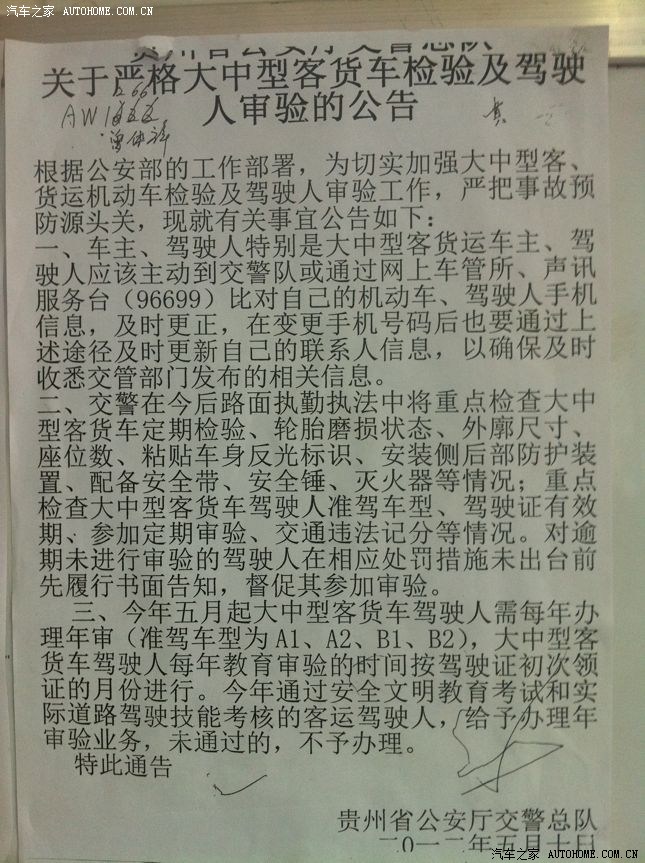 汽车之家 AUTOHOME.COM.CN
贵州省公安厅交警总队
关于严格大中型客货车检验及驾驶
人审验的公告
根据公安部的工作部署，为切实加强大中型客、
货运机动车检验及驾驶人审验工作，严把事故预
防源头关，现就有关事宜公告如下：
一、车主、驾驶人特别是大中型客货运车主、驾
驶人应该主动到交警队或通过网上车管所、声讯
服务台（96699）比对自己的机动车、驾驶人手机
信息，及时更正，在变更手机号码后也要通过上
述途径及时更新自己的联系人信息，以确保及时
收悉交管部门发布的相关信息。
二、交警在今后路面执勤执法中将重点检查大中
型客货车定期检验、轮胎磨损状态、外廓尺寸、
座位数、粘贴车身反光标识、安装侧后部防护装
置、配备安全带、安全锤、灭火器等情况；重点
检查大中型客货车驾驶人准驾车型、驾驶证有效
期、参加定期审验、交通违法记分等情况。对逾
期未进行审验的驾驶人在相应处罚措施未出台前
先履行书面告知，督促其参加审验。
三、今年五月起大中型客货车驾驶人需每年办
理年审（准驾车型为A1、A2、B1、B2），大中型客
货车驾驶人每年教育审验的时间按驾驶证初次领
证的月份进行。今年通过安全文明教育考试和实
际道路驾驶技能考核的客运驾驶人，给予办理年
审验业务，未通过的，不予办理。
特此通告
贵州省公安厅交警总队
二〇一二年五月十日
汽车之家 AUTOHOME.COM.CN